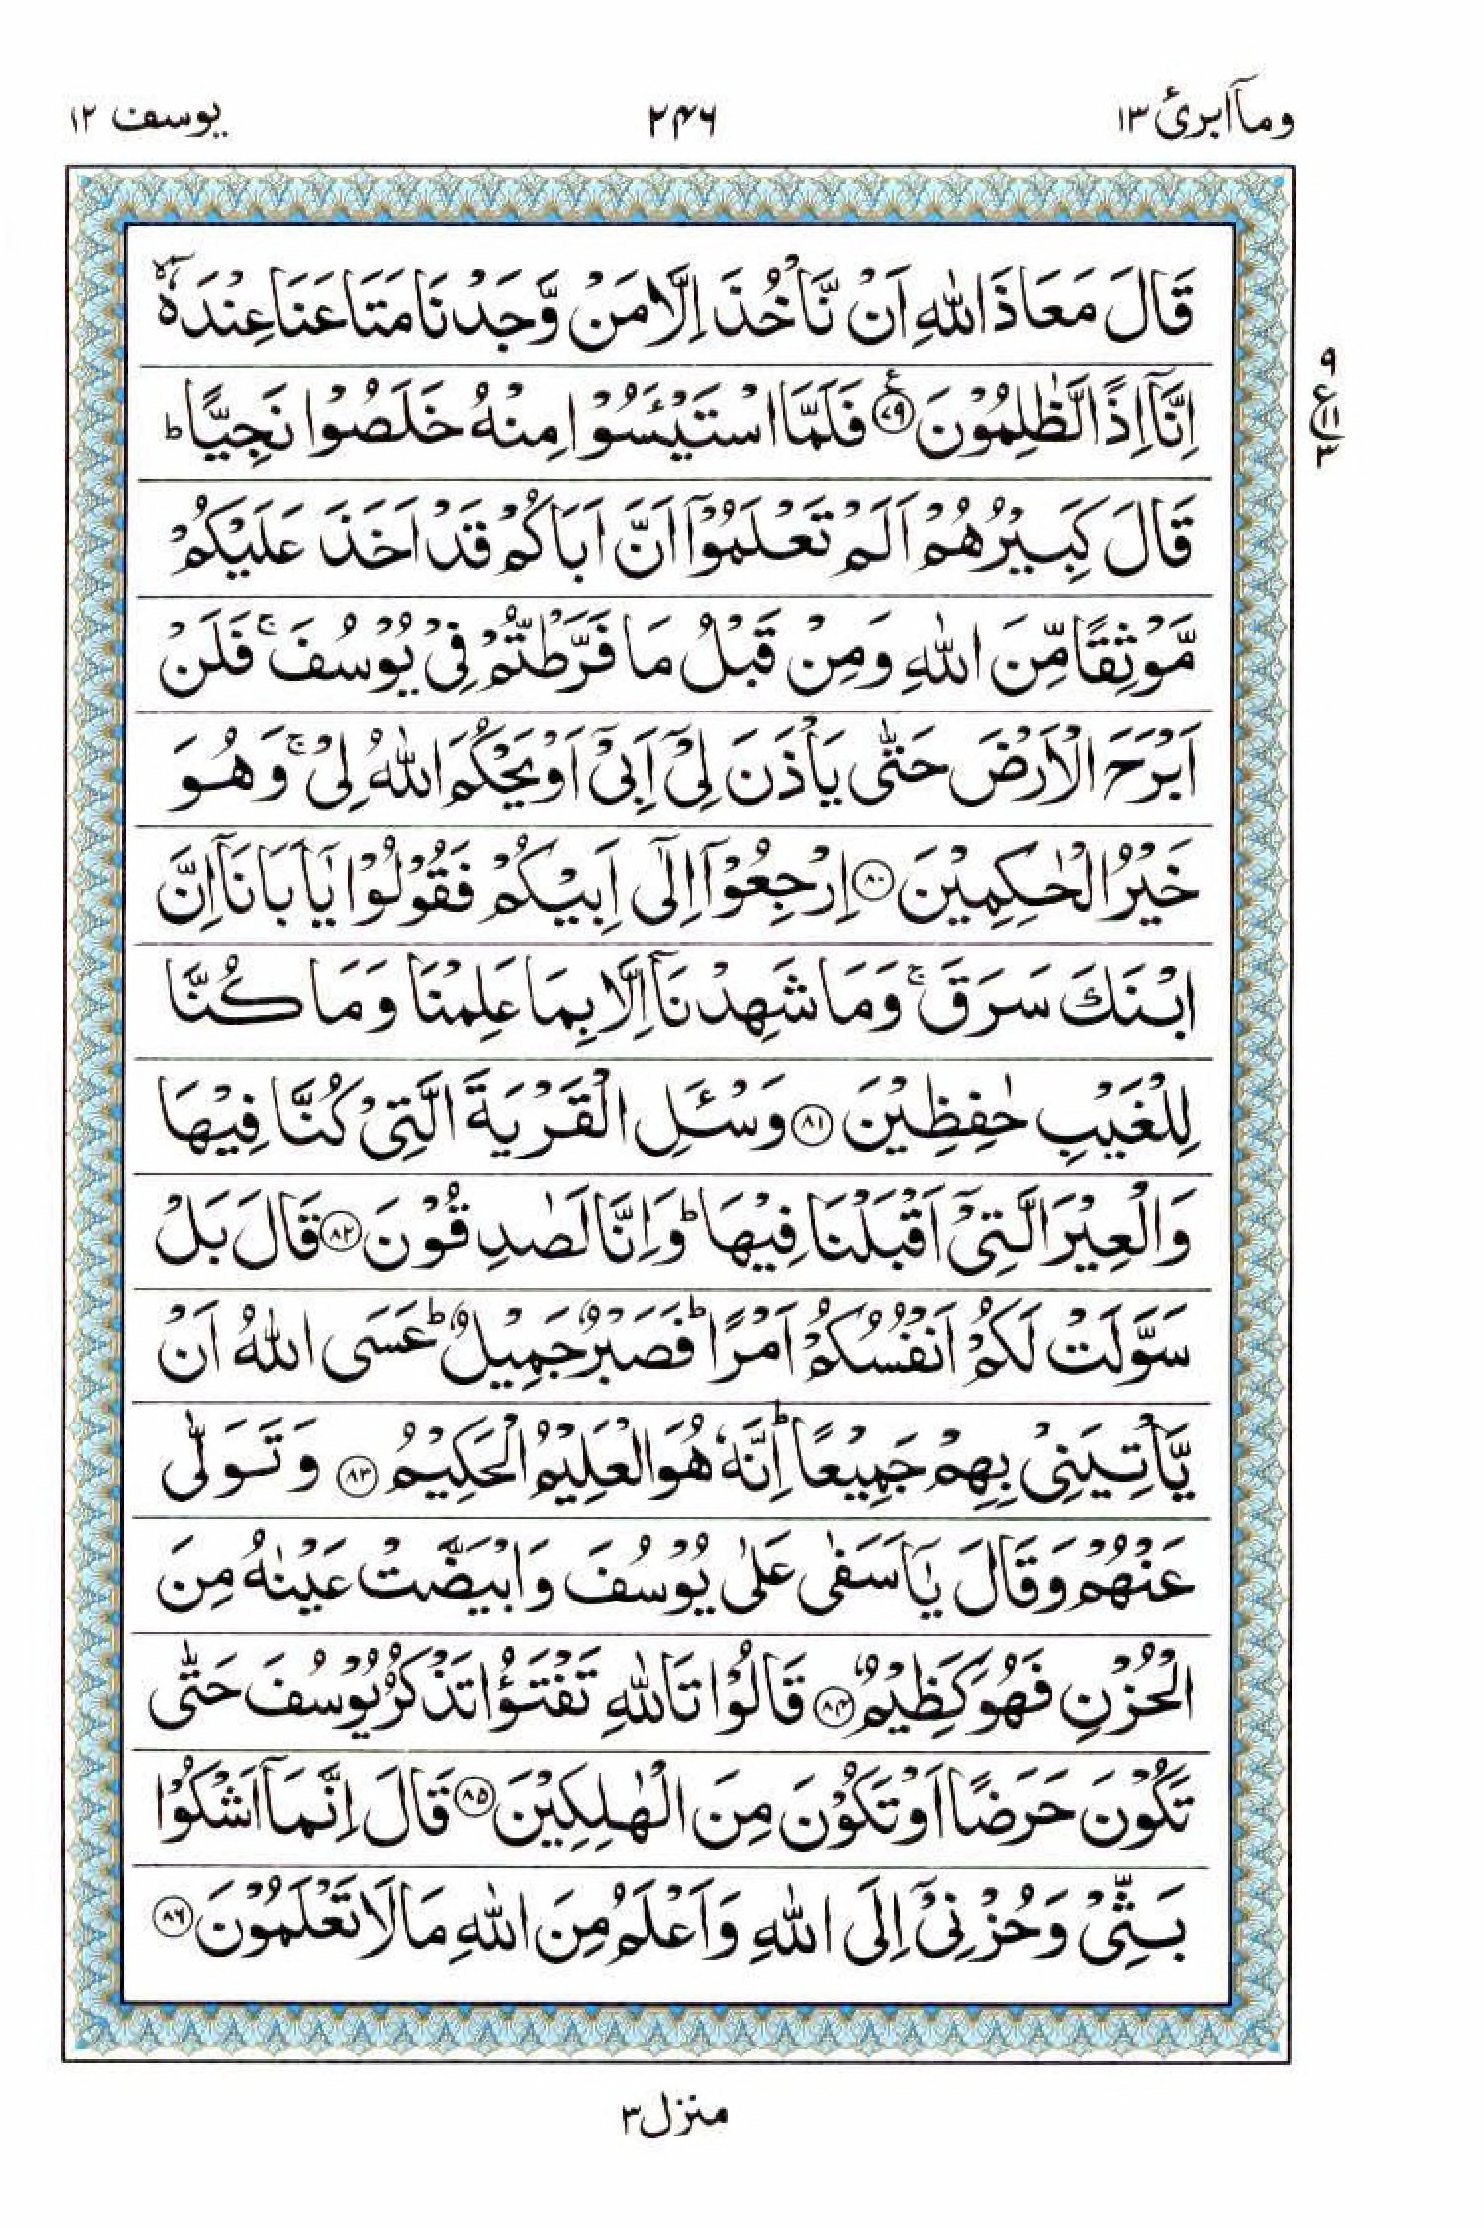 وماۤ ابرئ ۱۳
۲۴۶
يوسف ۱۲
قَالَ مَعَاذَ اللّٰهِ اَنْ نَّاْخُذَ اِلَّا مَنْ وَّجَدْنَا مَتَاعَنَا عِنْدَهٗۤ ۙ
اِنَّاۤ اِذًا لَّظٰلِمُوْنَ ﴿۷۹﴾ ع فَلَمَّا اسْتَيْـَٔسُوْا مِنْهُ خَلَصُوْا نَجِيًّا ؕ
۹
ع ۱۱
۳
قَالَ كَبِيْرُهُمْ اَلَمْ تَعْلَمُوْۤا اَنَّ اَبَاكُمْ قَدْ اَخَذَ عَلَيْكُمْ
مَّوْثِقًا مِّنَ اللّٰهِ وَمِنْ قَبْلُ مَا فَرَّطْتُّمْ فِيْ يُوْسُفَ ۚ فَلَنْ
اَبْرَحَ الْاَرْضَ حَتّٰى يَاْذَنَ لِيْۤ اَبِيْۤ اَوْ يَحْكُمَ اللّٰهُ لِيْ ۚ وَهُوَ
خَيْرُ الْحٰكِمِيْنَ ﴿۸۰﴾ اِرْجِعُوْۤا اِلٰۤى اَبِيْكُمْ فَقُوْلُوْا يٰۤاَبَانَاۤ اِنَّ
ابْنَكَ سَرَقَ ۚ وَمَا شَهِدْنَاۤ اِلَّا بِمَا عَلِمْنَا وَمَا كُنَّا
لِلْغَيْبِ حٰفِظِيْنَ ﴿۸۱﴾ وَسْـَٔلِ الْقَرْيَةَ الَّتِيْ كُنَّا فِيْهَا
وَالْعِيْرَ الَّتِيْۤ اَقْبَلْنَا فِيْهَا ؕ وَاِنَّا لَصٰدِقُوْنَ ﴿۸۲﴾ قَالَ بَلْ
سَوَّلَتْ لَكُمْ اَنْفُسُكُمْ اَمْرًا ؕ فَصَبْرٌ جَمِيْلٌ ؕ عَسَى اللّٰهُ اَنْ
يَّاْتِيَنِيْ بِهِمْ جَمِيْعًا ؕ اِنَّهٗ هُوَ الْعَلِيْمُ الْحَكِيْمُ ﴿۸۳﴾ وَتَوَلّٰى
عَنْهُمْ وَقَالَ يٰۤاَسَفٰى عَلٰى يُوْسُفَ وَابْيَضَّتْ عَيْنٰهُ مِنَ
الْحُزْنِ فَهُوَ كَظِيْمٌ ﴿۸۴﴾ قَالُوْا تَاللّٰهِ تَفْتَؤُا تَذْكُرُ يُوْسُفَ حَتّٰى
تَكُوْنَ حَرَضًا اَوْ تَكُوْنَ مِنَ الْهٰلِكِيْنَ ﴿۸۵﴾ قَالَ اِنَّمَاۤ اَشْكُوْا
بَثِّيْ وَحُزْنِيْۤ اِلَى اللّٰهِ وَاَعْلَمُ مِنَ اللّٰهِ مَا لَا تَعْلَمُوْنَ ﴿۸۶﴾
منزل ۳